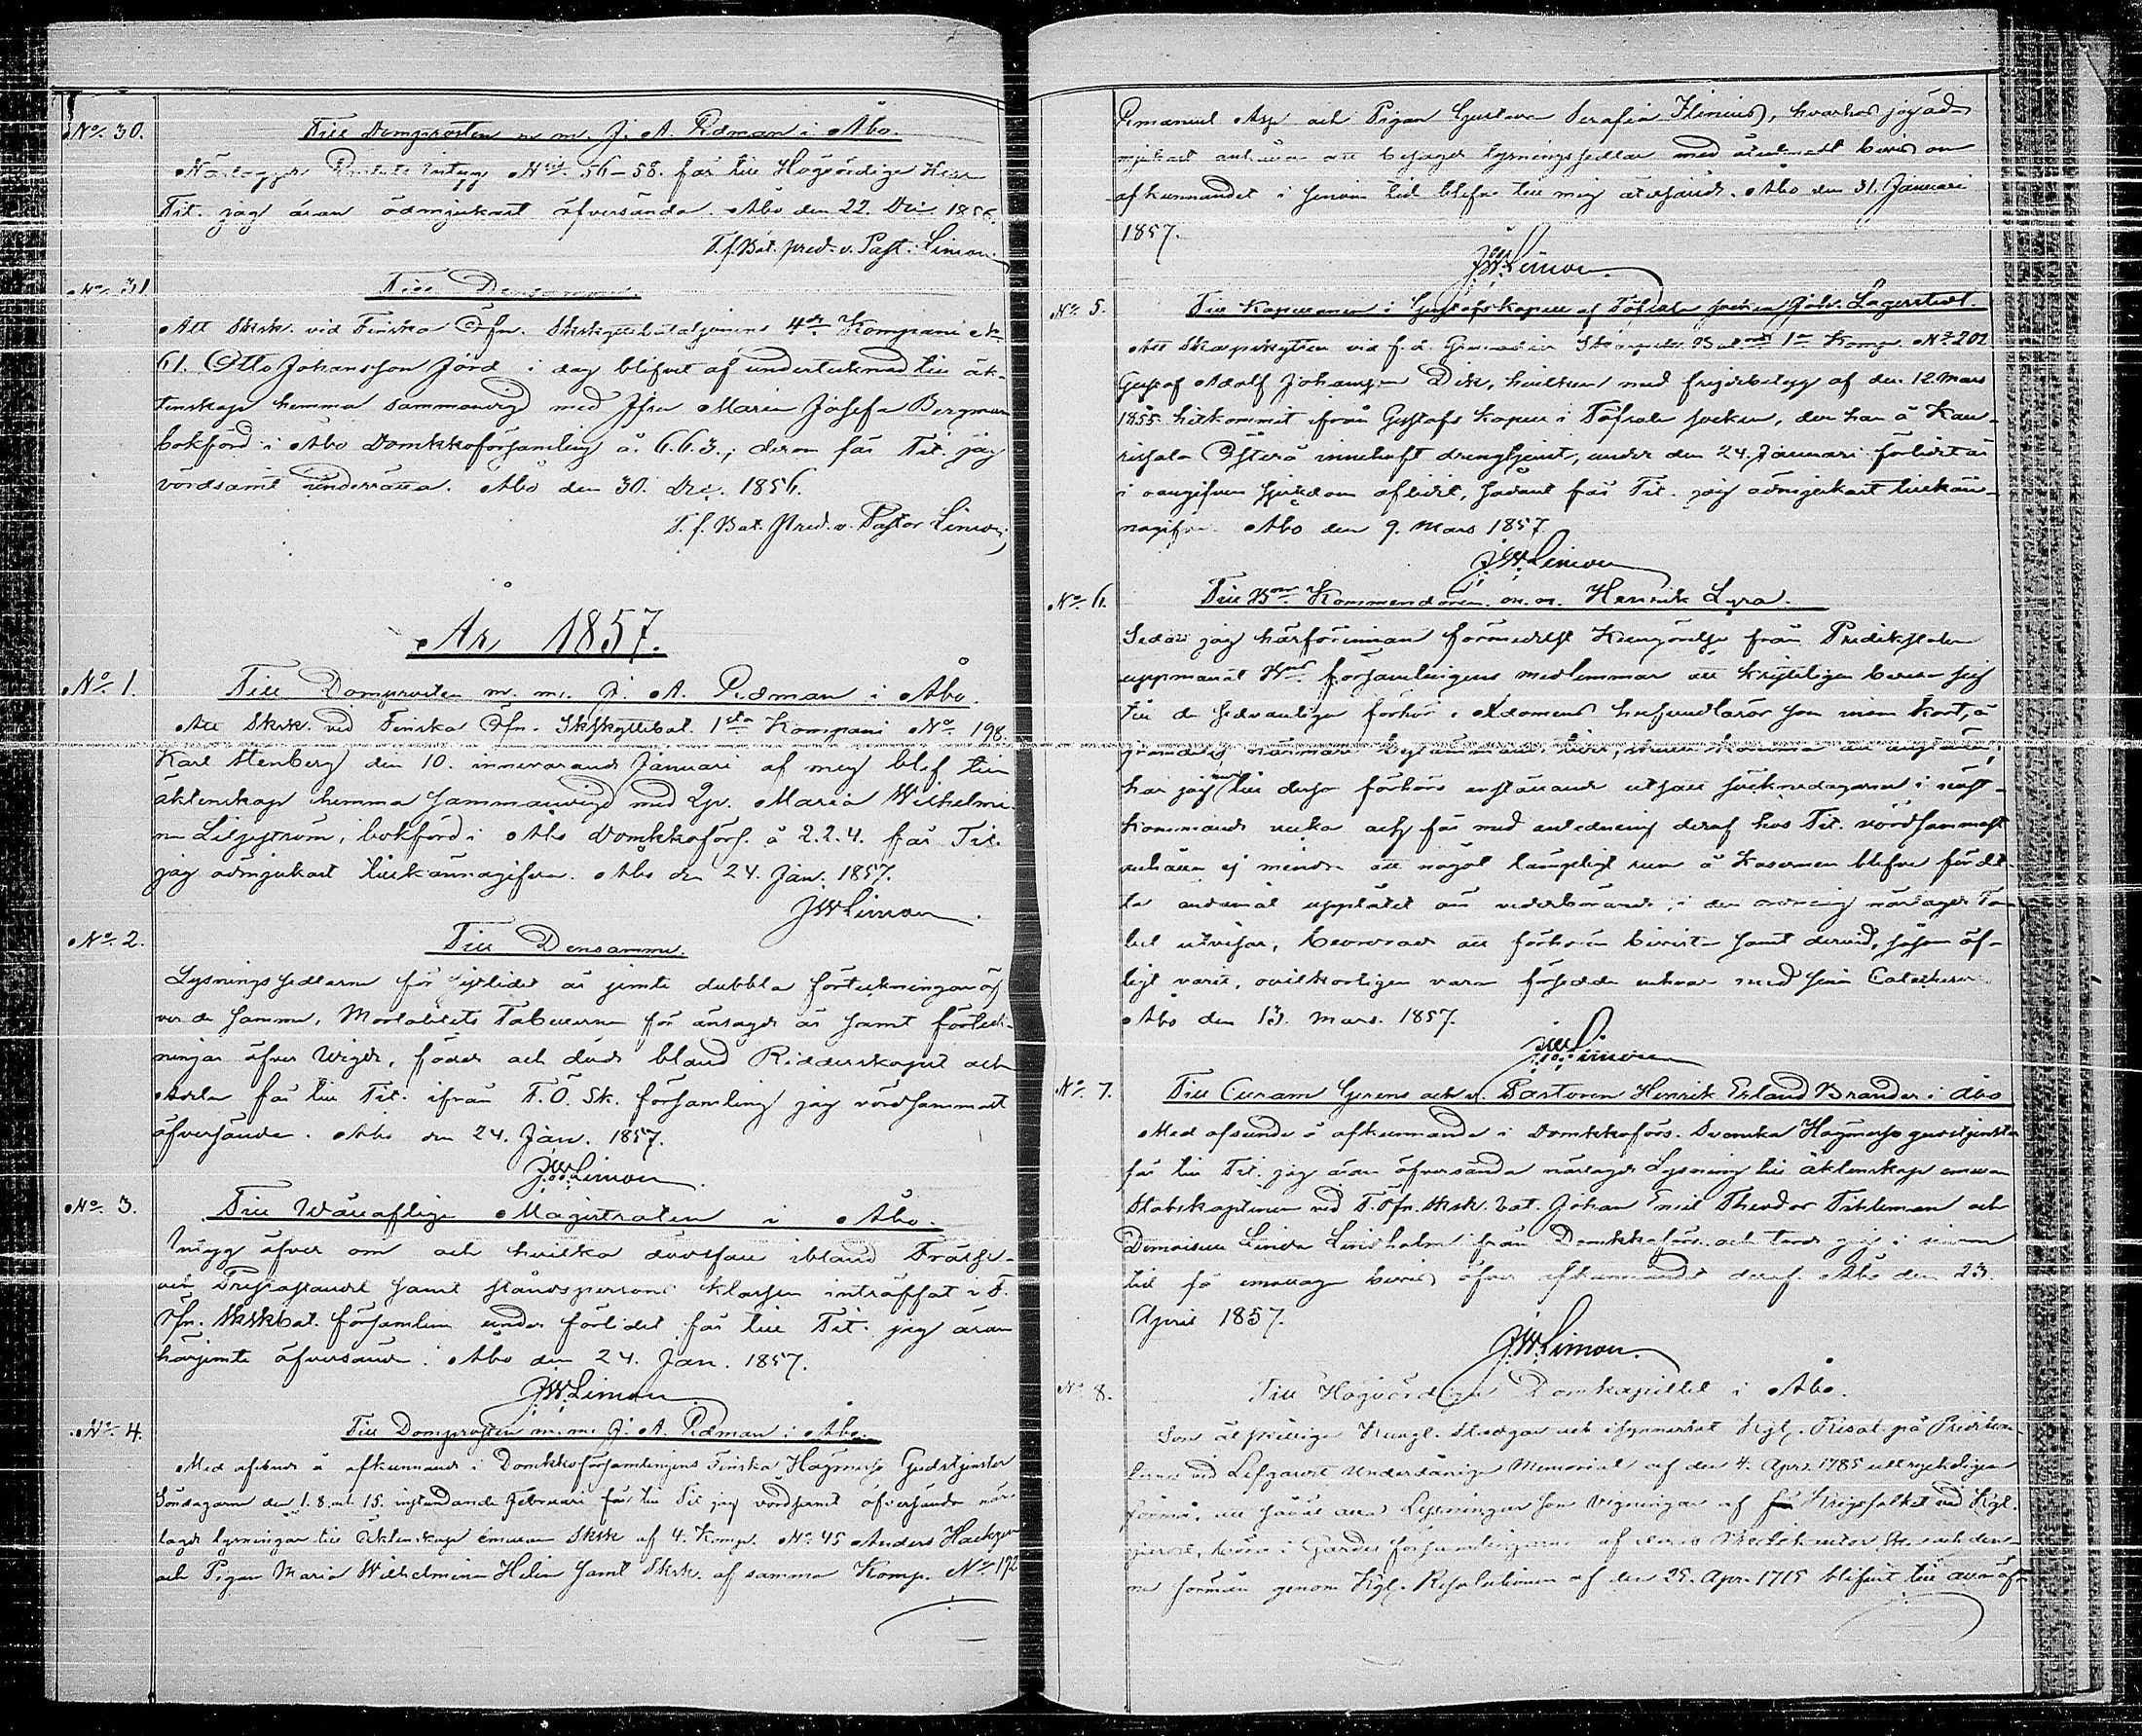 No. 30.
Till Domprosten m. m. J. A. Edman i Åbo.
Närlagde intyg No. 56-58. får till Högvördige Herr
Tit. jag äran ödmjukast öfversända. Åbo den 22. Dec. 1856.
T. f. Bat. pred. v. Past. Limon.
No. 31.
Till Densamme.
Att Skrsk. vid Finska Öfn. Skrskyttebataljonens 4de Kompani No
61. Otto Johansson Jord i dag blifvit af undertecknad till äk-
tenskap hemma sammanvigd med Jfru Maria Josefa Bergman
bokförd i Åbo Domkkoförsamling å. 6.6.3.; derom får Tit. jag
vördsamt underrätta. Åbo den 30. Dec. 1856.
T. f. Bat. Pred. v. Pastor Limon.
År 1857.
No. 1.
Till Domprosten m. m. J. A. Edman i Åbo.
Att Skrsk. vid Finska Öfn. Skrskyttebat. 1sta Kompani No. 198.
Karl Stenberg den 10. innevarande Januari af mig blef till
äktenskap hemma sammanvigd med Maria Wilhelmi-
na Liljeström, bokförd i Åbo Domkkoförs. å 2.2.4. får Tit.
jag ödmjukast tillkännagifva. Åbo den 24. Jan. 1857.
JW Limon.
No. 2.
Till Densamme.
Lysningssedlarne för sistlidet år jemte dubbla förteckningar öf-
ver de samma, Mortalitets Tabellerna för änsagde år samt förteck-
ningar öfver vigde, födde och döde bland Ridderskapet och
Adeln får till Tit. ifrån F. Ö. Sk. församling jag vördsammast
öfversända. Åbo den 24. Jan. 1857.
JW Limon.
No. 3.
Till Wällaflige Magistraten i Åbo.
Intyg öfver om och hvilka dödsfall ibland Frälse-
och Prestaståndet samt ståndspersons klassen inträffat i F.
Öfn. Skrskbat. församling under förlidet får till Tit. jag äran
härjemte öfversända. Åbo den 24. Jan. 1857.
JW Limon
No. 4.
Till Domprosten m. m. J. A. Edman i Åbo.
Med afseende å afkunnande i Domkkoförsamlingens Finska Högmesso Gudstjenster
Söndagarne den 1. 8. och 15. instundande Februari får till Tit jag vördsamt öfversända när-
lagde lysningar till Äktenskap emellan Skrsk af 4. Komp. No. 45 Anders
och Pigan Maria Wilhelmina Helin samt Skrsk. af samma Komp. No 192
Emanuel Asp och Pigan Gustava Serafia Ilenius, hvarhos jag öd-
mjukast anhåller att besagde lysningssedlar med åtecknadt bevis om
afkunnandet i sinom tid blifva till mig återsände. Åbo den 31. Januari
1857.
JW Limon.
No. 5.
Till Kapellanen i Gustafs kapell af Töfsala socken Joh. Lagerstedt.
Att Skarpskytten vid f. d. Grenadier Skarpsk. Bat. 1a Komp. No. 202
Gustaf Adolf Johansson Dik, hvilken med frejdebetyg af den 12. Mars
1855 hitkommit ifrån Gustafs kapell i Töfsala socken, der han å Kau-
rissalo Österö innehaft drengtjenst, under den 24. Januari förlidet år
i oangifven sjukdom aflidit, sådant får Tit. jag ödmjukast tillkän-
nagifva. Åbo den 9. Mars 1857
JW Limon
No. 6.
Till Kommendören m. m. Henrik Lyra.
Sedan jag härförinnan förmedelst Kungörelse från Predikstolen
uppmanat församlingens medlemmar att bereda sig
till de sedvanliga förhör i Kristendomens hufvudläror som inom kort, å
närmare bestämmande tider, komma att anställas,
har jag till dessa förhörs anställande utsatt söknedagarne i näst-
kommande vecka och får med anledning deraf hos Tit. vördsammast
anhålla ej mindre att något lämpligt rum å Kasernen blifver för det-
ta ändamål upplåtet än vederbörande, i den ordning närlagde Ta-
bell utvisar, beordrade att förhören bevista samt dervid, såsom öf-
ligt varit, ovilkorligen vara försedde enhvar med sin Cateches.
Åbo den 13. Mars. 1857.
JW Limon
No. 7.
Till Curam Gerens och v. Pastoren Henrik Erland Brander i Åbo
Med afseende å afkunnande i Domkkoförs. Svenska Högmesso gudstjenster
får till Tit. jag äran öfversända närlagde Lysning till äktenskap emellan
Stabskaptenen vid F. Öfn. Skrsk. bat. Johan Emil Theodor Tihleman och
Demoiselle Linda Lindholm från Domkkoförs. och torde jag i sinom
tid få emottaga bevis öfver afkunnandet deraf. Åbo den 23.
April 1857.
JW Limon.
No. 8.
Till Högvördiga Domkapitlet i Åbo.
Som åtskillige Kungl. Stadgar och i synnerhet Kgl. Resol. på Predikan-
ternes vid Lifgardet Underdåniga Memorial af den 4. Apr. 1785 uttryckeligen
förmå, att såväl alla Lysningar som vigningar af Krigsfolket vid Kgl.
gardet, böra i Gardes församlingarne af deras och den-
na förmån genom Kgl. Resolutionen af den 25. Apr. 1715 blifvit till